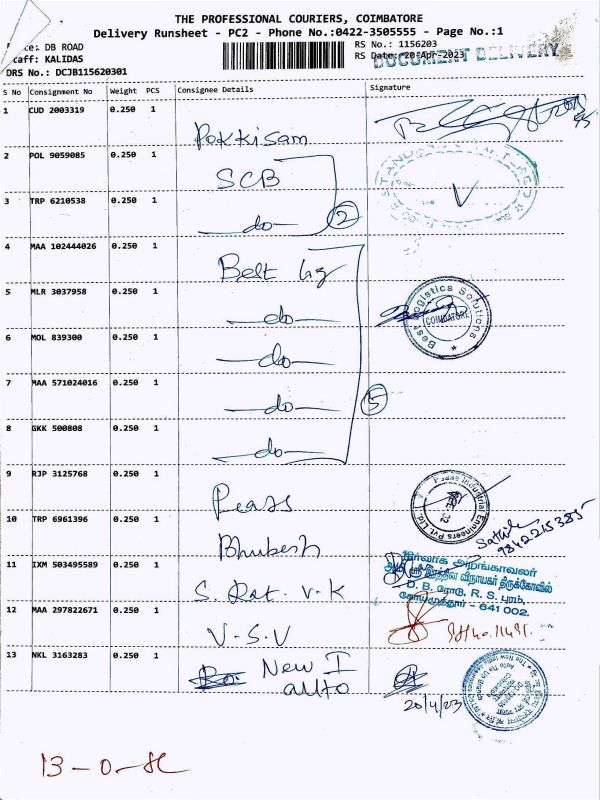 THE PROFESSIONAL COURIERS, COIMBATORE
Delivery Runsheet - PC2 - Phone No.:0422-3505555 - Page No.:1
DB ROAD RS No.: 1156203
KALIDAS RS Date: 20-Apr-2023
DOCUMENT DELIVERY
DRS No.: DCJB115620301
S No Consignment No Weight PCS Consignee Details Signature
1 CUD 2003319 0.250 1
Pokkisam
2 POL 9059085 0.250 1
SCB
3 TRP 6210538 0.250 1
do 2
4 MAA 102444026 0.250 1
Best Lg
5 MLR 3037958 0.250 1
do
Best Logistics Solutions
COIMBATORE
6 MOL 839300 0.250 1
do
7 MAA 571024016 0.250 1
do 5
8 GKK 500808 0.250 1
do
9 RJP 3125768 0.250 1
Peass
Industrial Engineers Pvt. Ltd.
10 TRP 6961396 0.250 1
Bhubesh
9842215385
11 IXM 503495589 0.250 1
S. Rat. V.K
நிர்வாக அறங்காவலர்
விநாயகர் திருக்கோவில்
D. B. ரோடு, R. S. புரம்,
கோயமுத்தூர் - 641 002.
12 MAA 297822671 0.250 1
V-S-V
13 NKL 3163283 0.250 1
New I
auto
20/4/23
13-0-